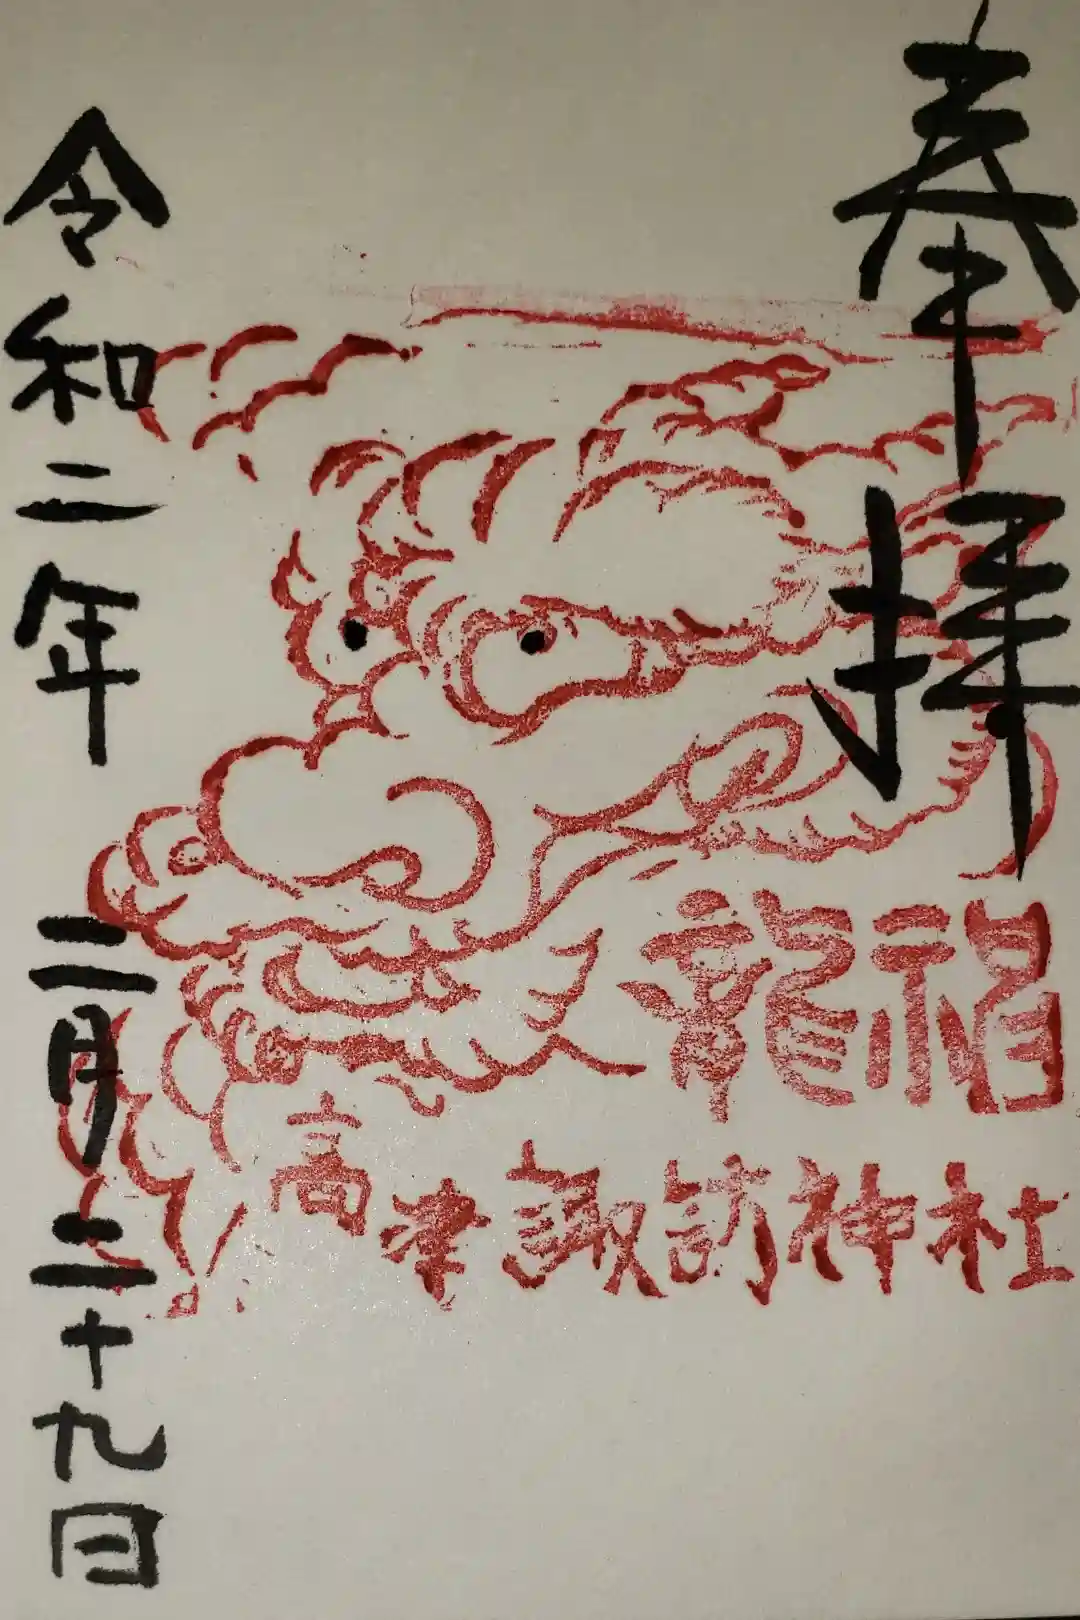 奉拝
龍福
高津諏訪神社
令和二年二月二十九日